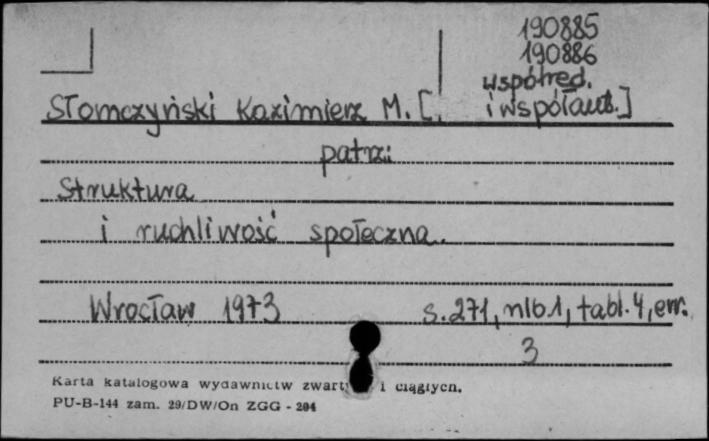 190885
190886
współred.
Słomczyński Kazimierz M. [ i współaut.]
patrz:
Struktura
i ruchliwość społeczna.
Wrocław 1973 s. 271, nlb 1, tabl. 4, err.
3
Karta katalogowa wydawnictw i ciągłych.
PU-B-144 zam. 29/DW/On ZGG - 204